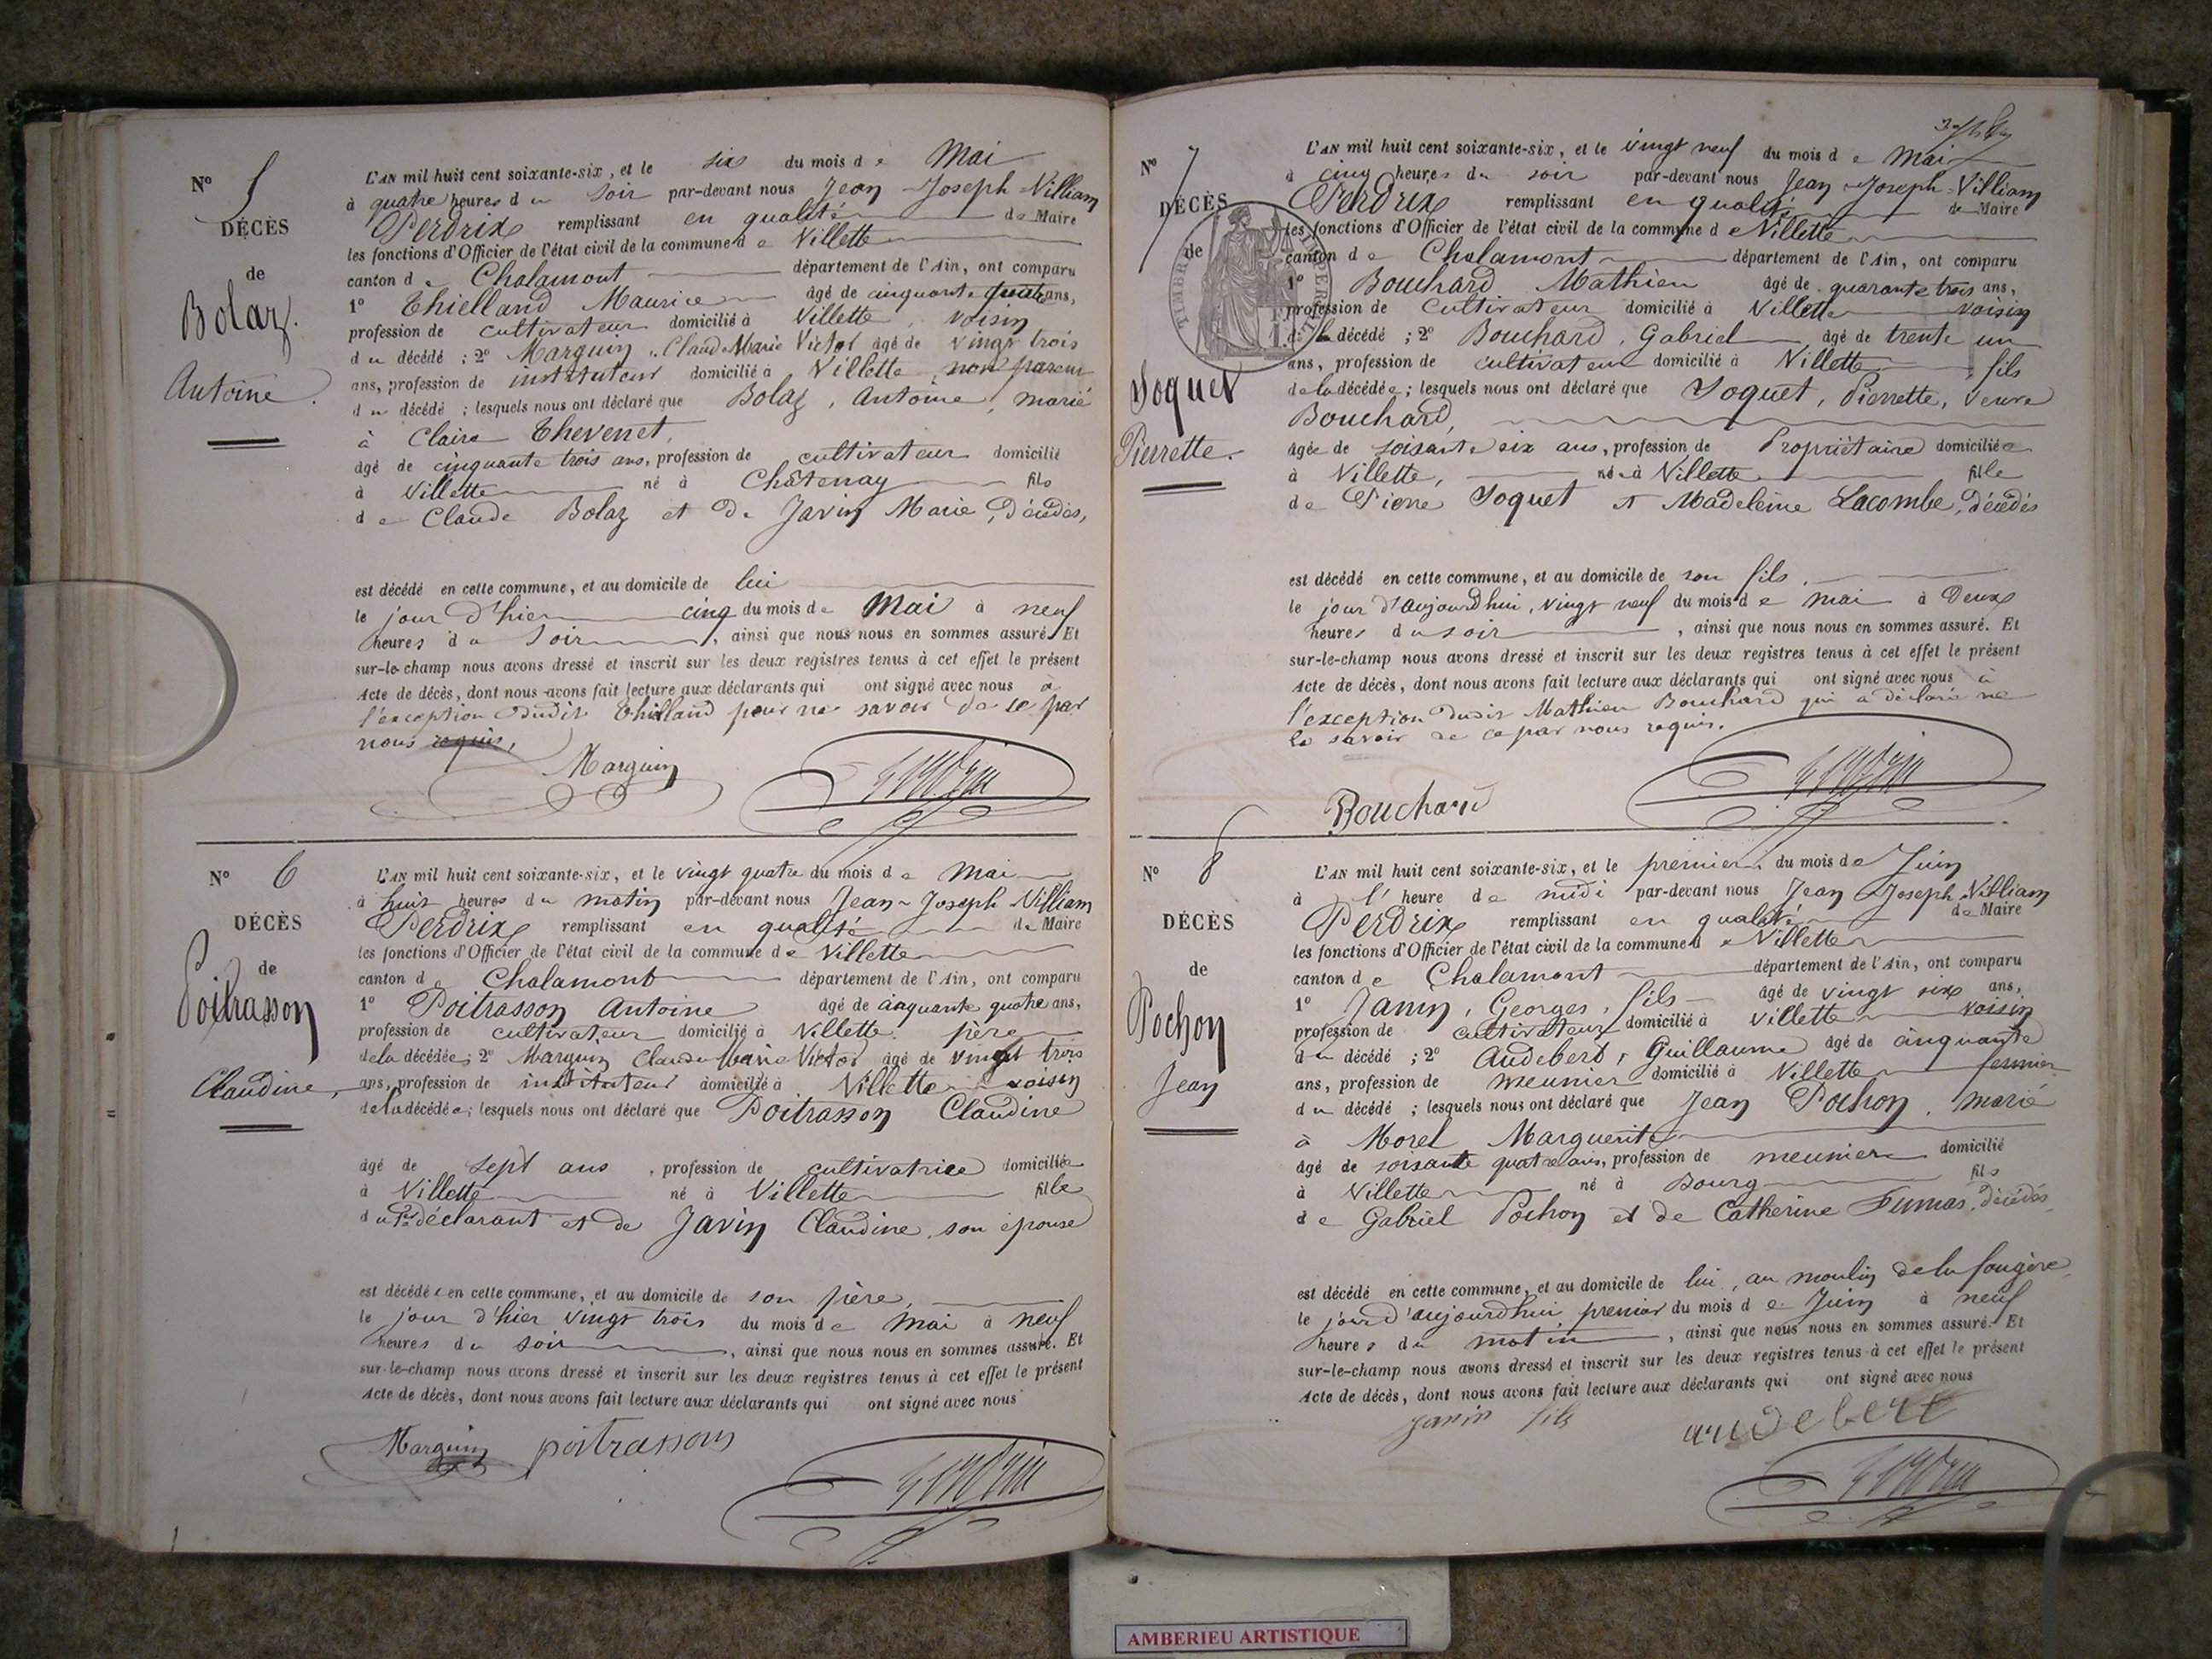 N° 5
DÉCÈS
de
Bolaz.
Antoine.
L'AN mil huit cent soixante-six, et le six du mois de Mai
à quatre heures du soir par-devant nous Jean-Joseph-Villiam
Perdrix remplissant en qualité de Maire
les fonctions d'Officier de l'état civil de la commune de Villette
canton de Chalamont département de l'Ain, ont comparu
1° Thielland Maurice âgé de cinquante ans,
profession de cultivateur domicilié à Villette, voisin
du décédé ; 2° Marguin, Claude Marie Victor âgé de vingt trois
ans, profession de instituteur domicilié à Villette non parent
du décédé ; lesquels nous ont déclaré que Bolaz, Antoine, marié
à Claire Thevenet,
âgé de cinquante trois ans, profession de cultivateur domicilié
à Villette né à Châtenay fils
de Claude Bolaz et de Javin Marie, Décédés,
est décédé en cette commune, et au domicile de lui
le jour d'hier cinq du mois de Mai à neuf
heures du soir, ainsi que nous nous en sommes assuré. Et
sur-le-champ nous avons dressé et inscrit sur les deux registres tenus à cet effet le présent
Acte de décès, dont nous avons fait lecture aux déclarants qui ont signé avec nous à
l'exception dudit Thielland pour ne savoir de ce par
nous requis,
Marguin
N° 6
DÉCÈS
de
Poitrasson
Claudine,
L'AN mil huit cent soixante-six, et le vingt quatre du mois de Mai
à huit heures du matin par-devant nous Jean-Joseph-Villiam
Perdrix remplissant en qualité de Maire
les fonctions d'Officier de l'état civil de la commune de Villette
canton de Chalamont département de l'Ain, ont comparu
1° Poitrasson Antoine âgé de cinquante quatre ans,
profession de cultivateur domicilié à Villette père
de la décédée; 2° Marguin Claude Marie Victor âgé de vingt trois
ans, profession de instituteur domicilié à Villette voisin
de la décédée; lesquels nous ont déclaré que Poitrasson Claudine
âgé de sept ans, profession de cultivatrice domiciliée
à Villette né à Villette fille
du 1er déclarant et de Javin Claudine, son épouse
est décédée en cette commune, et au domicile de son père,
le jour d'hier vingt trois du mois de Mai à neuf
heures du soir, ainsi que nous nous en sommes assuré. Et
sur-le-champ nous avons dressé et inscrit sur les deux registres tenus à cet effet le présent
Acte de décès, dont nous avons fait lecture aux déclarants qui ont signé avec nous
Marguin poitrassons
N° 7
DÉCÈS
de
Soquet
Pierrette.
L'AN mil huit cent soixante-six, et le vingt neuf du mois de Mai
à cinq heures du soir par-devant nous Jean-Joseph-Villiam
Perdrix remplissant en qualité de Maire
les fonctions d'Officier de l'état civil de la commune de Villette
canton de Chalamont département de l'Ain, ont comparu
1° Bouchard Mathieu âgé de quarante trois ans,
profession de cultivateur domicilié à Villette voisin
de la décédé ; 2° Bouchard, Gabriel âgé de trente un
ans, profession de cultivateur domicilié à Villette, fils
de la décédée; lesquels nous ont déclaré que Soquet, Pierrette, veuve
Bouchard,
âgée de soisante six ans, profession de Propriétaire domiciliée
à Villette, née à Villette fille
de Pierre Soquet et Madeleine Lacombe, Décédés
est décédé en cette commune, et au domicile de son fils,
le jour d'aujourd'hui, vingt neuf du mois de mai à Deux
heures du soir, ainsi que nous nous en sommes assuré. Et
sur-le-champ nous avons dressé et inscrit sur les deux registres tenus à cet effet le présent
Acte de décès, dont nous avons fait lecture aux déclarants qui ont signé avec nous à
l'exception dudit Mathieu Bouchard qui a déclaré ne
le savoir de ce par nous requis.
Bouchard
N° 8
DÉCÈS
de
Pochon
Jean
L'AN mil huit cent soixante-six, et le premier du mois de Juin
à l'heure de midi par-devant nous Jean Joseph-Villiam
Perdrix remplissant en qualité de Maire
les fonctions d'Officier de l'état civil de la commune de Villette
canton de Chalamont département de l'Ain, ont comparu
1° Janin, Georges, fils âgé de vingt six ans,
profession de cultivateur domicilié à Villette voisin
du décédé ; 2° Audebert, Guillaume âgé de cinquante
ans, profession de meunier domicilié à Villette fermier
du décédé ; lesquels nous ont déclaré que Jean Pochon, marié
à Morel Marguerite
âgé de soisante quatre ans, profession de meunier domicilié
à Villette né à Bourg fils
de Gabriel Pochon et de Catherine Dumas, décédés,
est décédé en cette commune, et au domicile de lui, au moulin de la fougère,
le jour d'aujourd'hui, premier du mois de Juin à neuf
heures du matin, ainsi que nous nous en sommes assuré. Et
sur-le-champ nous avons dressé et inscrit sur les deux registres tenus à cet effet le présent
Acte de décès, dont nous avons fait lecture aux déclarants qui ont signé avec nous
janin fils audebert
AMBERIEU ARTISTIQUE